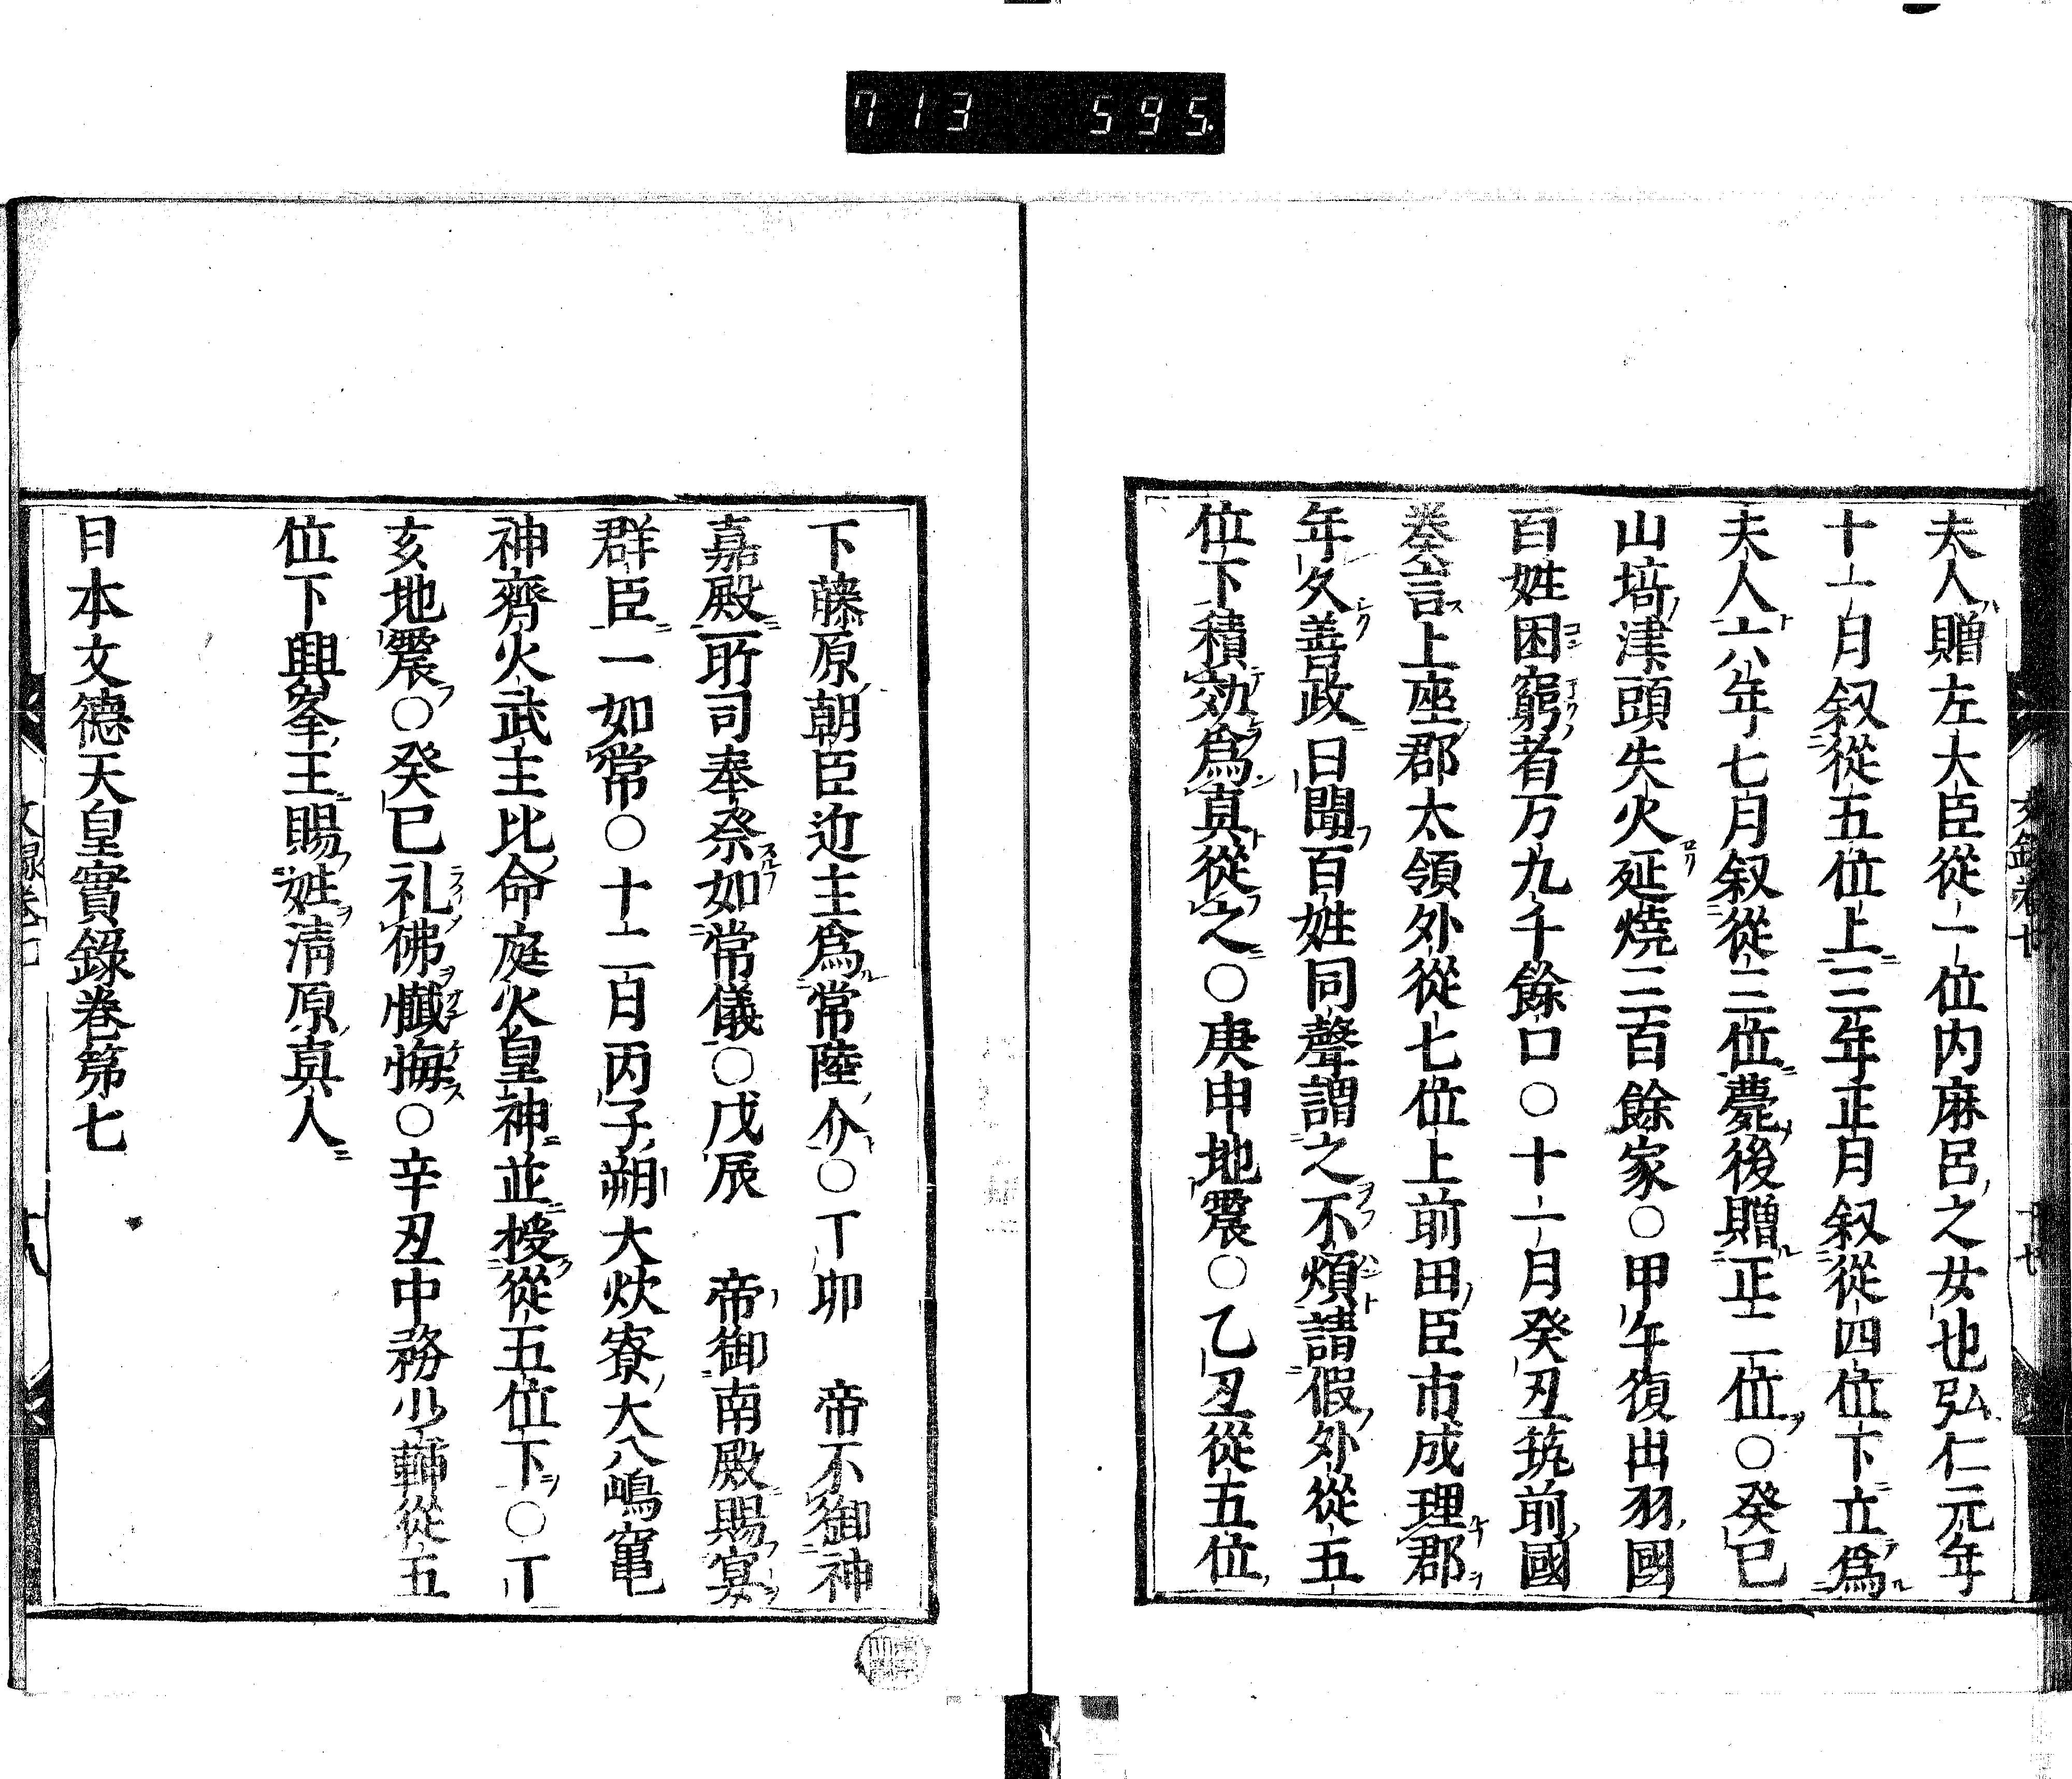 713 595
夫人贈左大臣從一位内麻呂之女也弘仁元年
十一月叙從五位上三年正月叙從四位下立爲
夫人六年七月叙從三位薨後贈正二位〇癸巳
山埼津頭失火延燒三百餘家〇甲午復出羽國
百姓困窮者万九千餘口〇十一月癸丑筑前國
奏言上座郡太領外從七位上前田臣市成理郡
年久善政日聞百姓同聲謂之不煩請假外從五
位下積効爲真從之〇庚申地震〇乙丑從五位
下藤原朝臣近主爲常陸介〇丁卯 帝不御神
嘉殿所司奉祭如常儀〇戊辰 帝御南殿賜宴
群臣一如常〇十二月丙子朔大炊寮大八嶋竈
神齊火武主比命庭火皇神並授從五位下〇丁
亥地震〇癸巳礼佛懺悔〇辛丑中務少輔從五
位下興峯王賜姓清原真人
日本文德天皇實錄卷第七